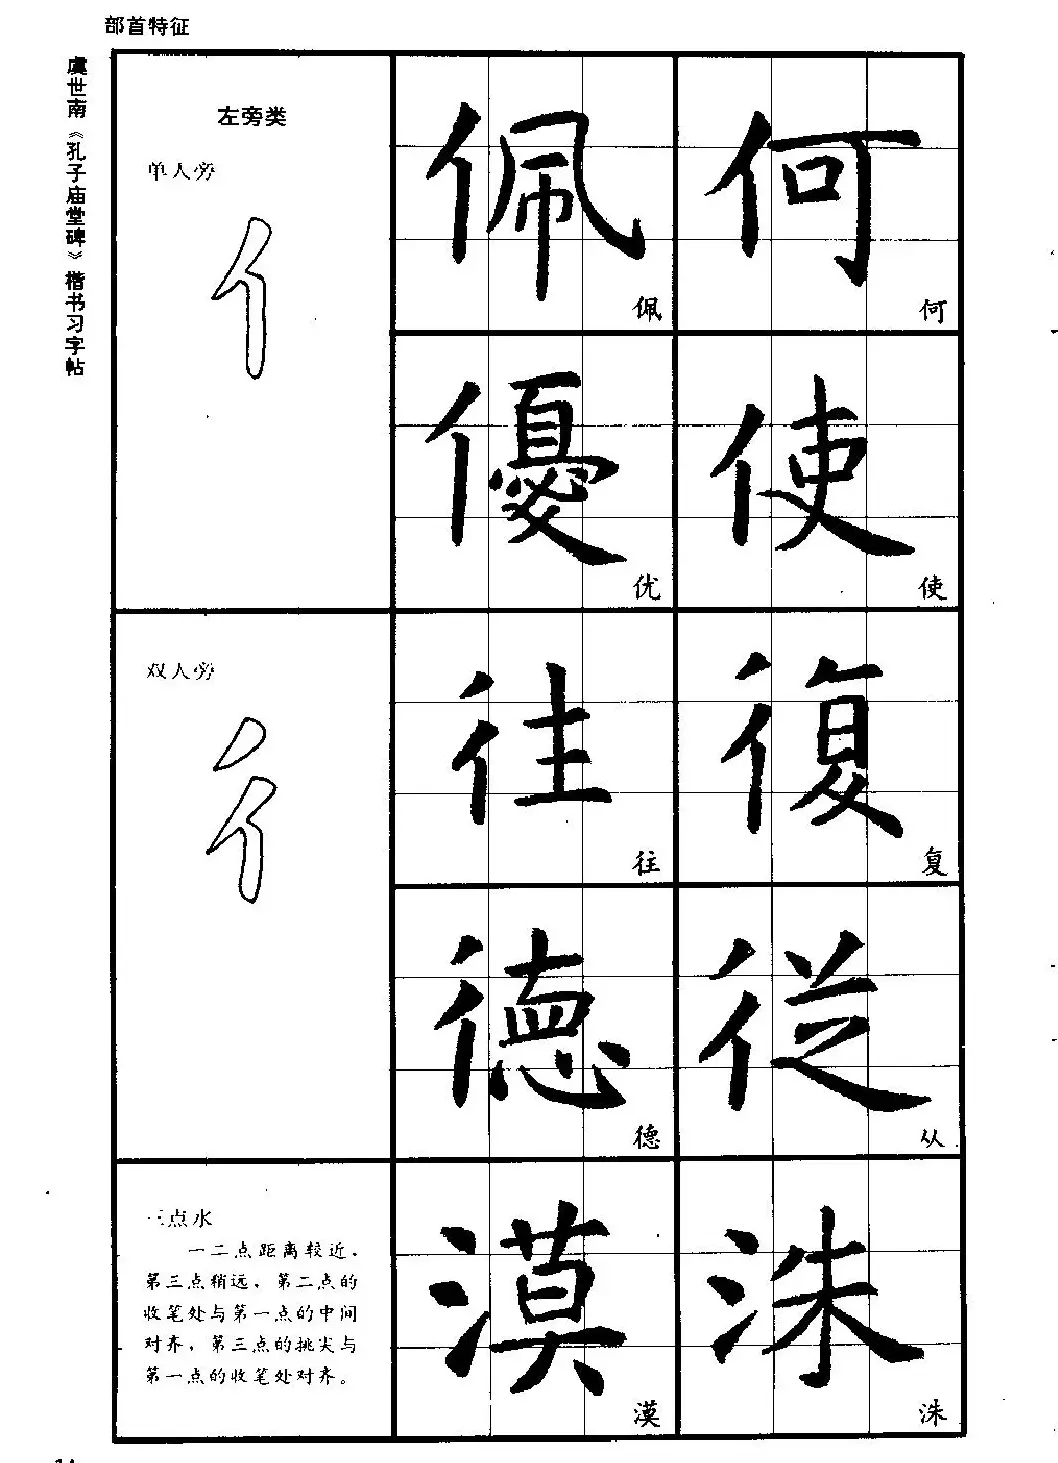 部首特征
虞世南《孔子庙堂碑》楷书习字帖
左旁类
单人旁
亻
佩
佩
何
何
優
优
使
使
双人旁
彳
往
往
復
复
德
德
從
从
三点水
一二点距离较近，
第三点稍远，第二点的
收笔处与第一点的中间
对齐，第三点的挑尖与
第一点的收笔处对齐。
漠
漠
洙
洙